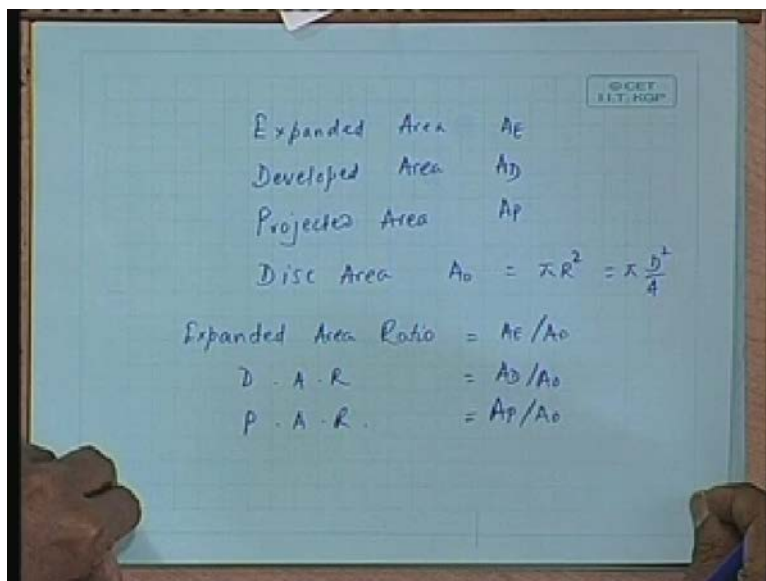 © CET
I.I.T. KGP
Expanded Area AE
Developed Area AD
Projected Area AP
Disc Area A0 = πR² = π D²/4
Expanded Area Ratio = AE/A0
D.A.R = AD/A0
P.A.R. = AP/A0